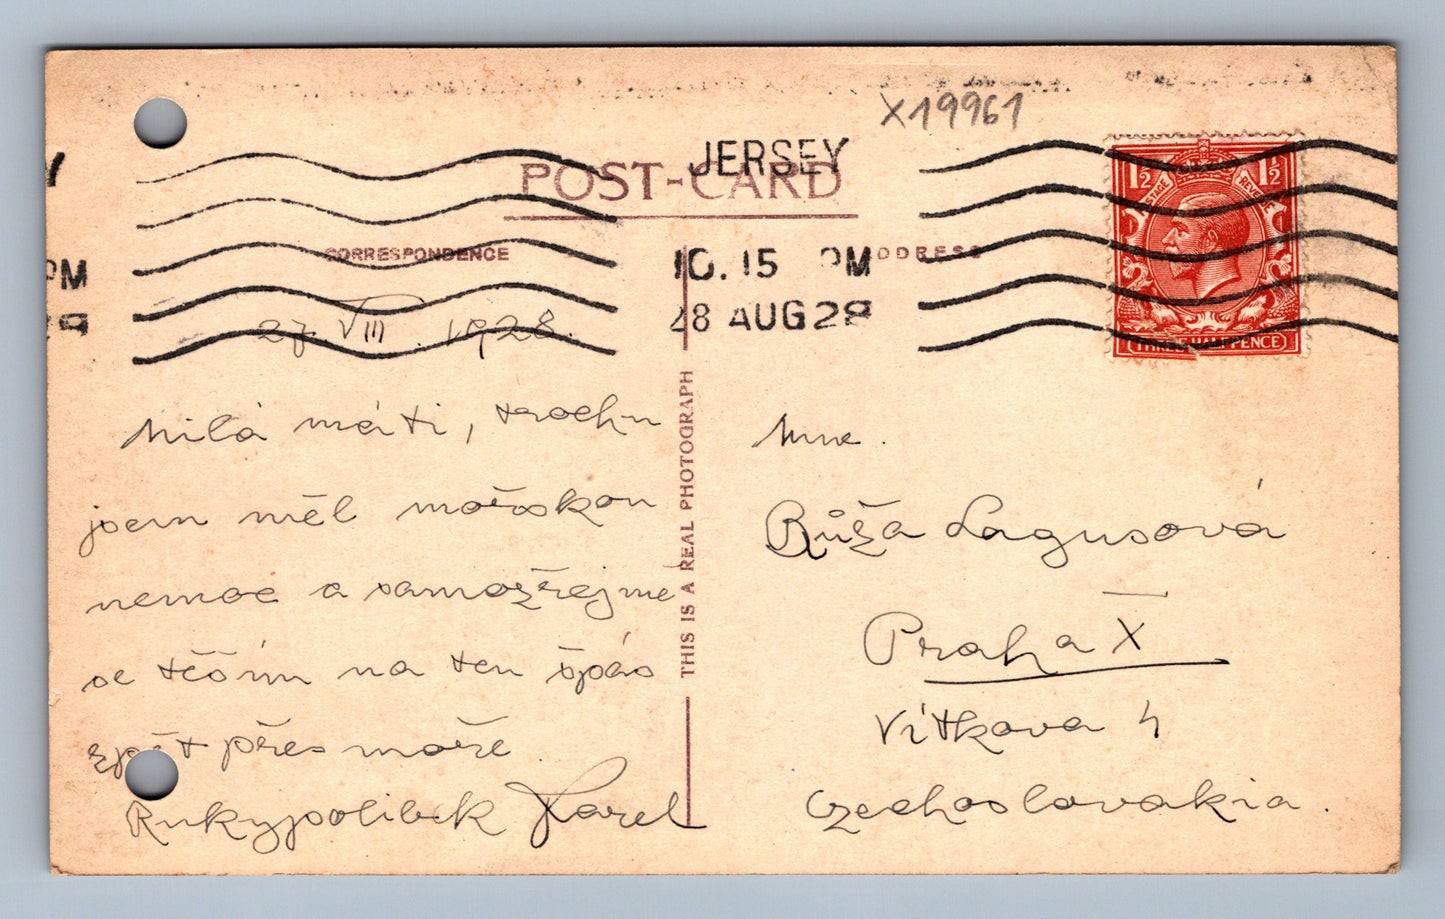 X19961
JERSEY
POST-CARD
CORRESPONDENCE
ADDRESS
10.15 PM
28 AUG 28
PM
1½ 1½
POSTAGE REVENUE
THREE HALFPENCE
27. VIII. 1928.
Milá máti, trochu
jsem měl mořskou
nemoc a samozřejmě
se těším na ten špás
zpět přes moře.
Rukypolibek Karel
THIS IS A REAL PHOTOGRAPH
Mme.
Růža Lagusová
Praha X
Vítkova 4
Czechoslovakia.